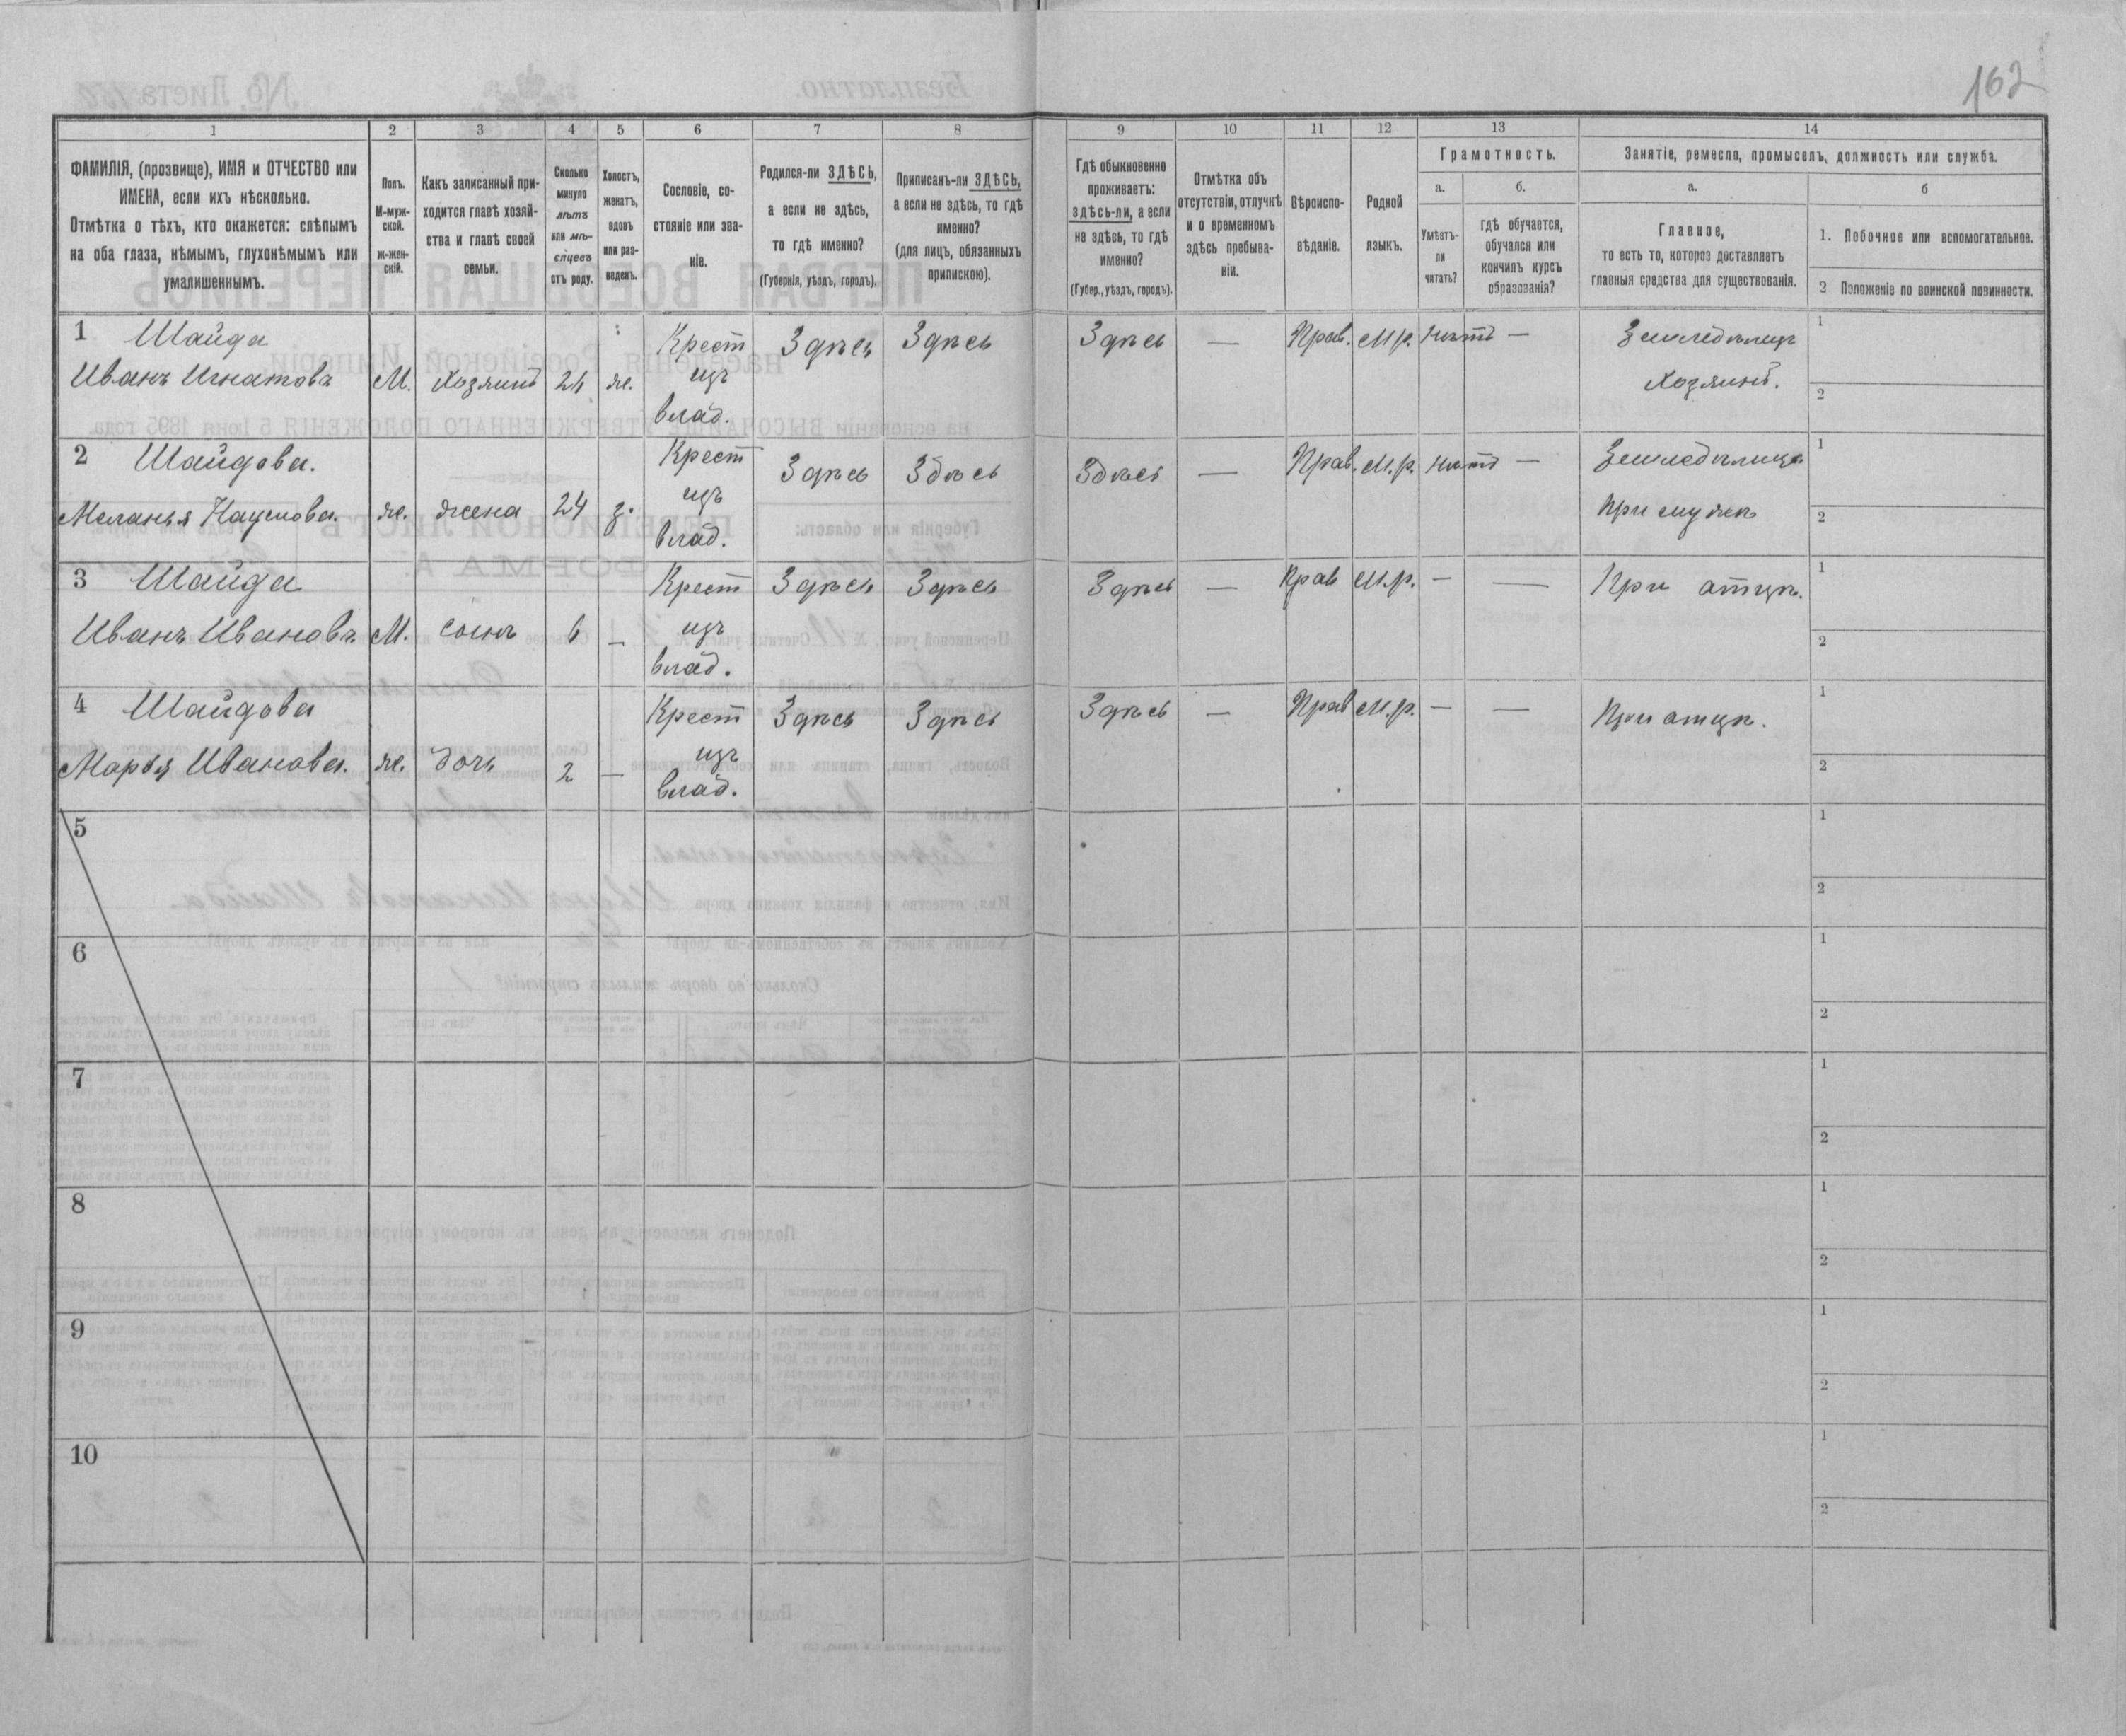 162
1 2 3 4 5 6 7 8 9 10 11 12 13 14
ФАМИЛІЯ, (прозвище), ИМЯ и ОТЧЕСТВО или
ИМЕНА, если ихъ нѣсколько.
Отмѣтка о тѣхъ, кто окажется: слѣпымъ
на оба глаза, нѣмымъ, глухонѣмымъ или
умалишеннымъ.
Полъ.
М-муж-
ской.
ж-жен-
скій.
Какъ записанный при-
ходится главѣ хозяй-
ства и главѣ своей
семьи.
Сколько
минуло
лѣтъ
или мѣ-
сяцевъ
отъ роду.
Холостъ,
женатъ,
вдовъ
или раз-
веденъ.
Сословіе, со-
стояніе или зва-
ніе.
Родился-ли ЗДѢСЬ,
а если не здѣсь,
то гдѣ именно?
(Губернія, уѣздъ, городъ).
Приписанъ-ли ЗДѢСЬ,
а если не здѣсь, то гдѣ
именно?
(для лицъ, обязанныхъ
припискою).
Гдѣ обыкновенно
проживаетъ:
здѣсь-ли, а если
не здѣсь, то гдѣ
именно?
(Губер., уѣздъ, городъ).
Отмѣтка объ
отсутствіи, отлучкѣ
и о временномъ
здѣсь пребыва-
ніи.
Вѣроиспо-
вѣданіе.
Родной
языкъ.
Грамотность.
а.
Умѣетъ-
ли
читать?
б.
гдѣ обучается,
обучался или
кончилъ курсъ
образованія?
Занятіе, ремесло, промыселъ, должность или служба.
а.
Главное,
то есть то, которое доставляетъ
главныя средства для существованія.
б
1. Побочное или вспомогательное.
2 Положеніе по воинской повинности.
1 Шайда Крест Здѣсь Здѣсь Здѣсь — Прав. М.р. нѣтъ — Земледѣлецъ 1
Иванъ Игнатовъ М. хозяинъ 24 ж. изъ Хозяинъ. 2
влад.
2 Шайдова. Крест Здѣсь Здѣсь Здѣсь — Прав. М.р. нѣтъ — 1
Меланья Наумова. ж. жена 24 з. изъ При мужѣ 2
влад.
3 Шайда Крест Здѣсь Здѣсь Здѣсь — Прав М.р. — — При отцѣ. 1
Иванъ Ивановъ М. сынъ 6 — изъ 2
влад.
4 Шайдова Крест Здѣсь Здѣсь Здѣсь — Прав М.р. — — При отцѣ. 1
Марья Иванова. ж. дочь 2 — изъ 2
влад.
5 1
2
6 1
2
7 1
2
8 1
2
9 1
2
10 1
2